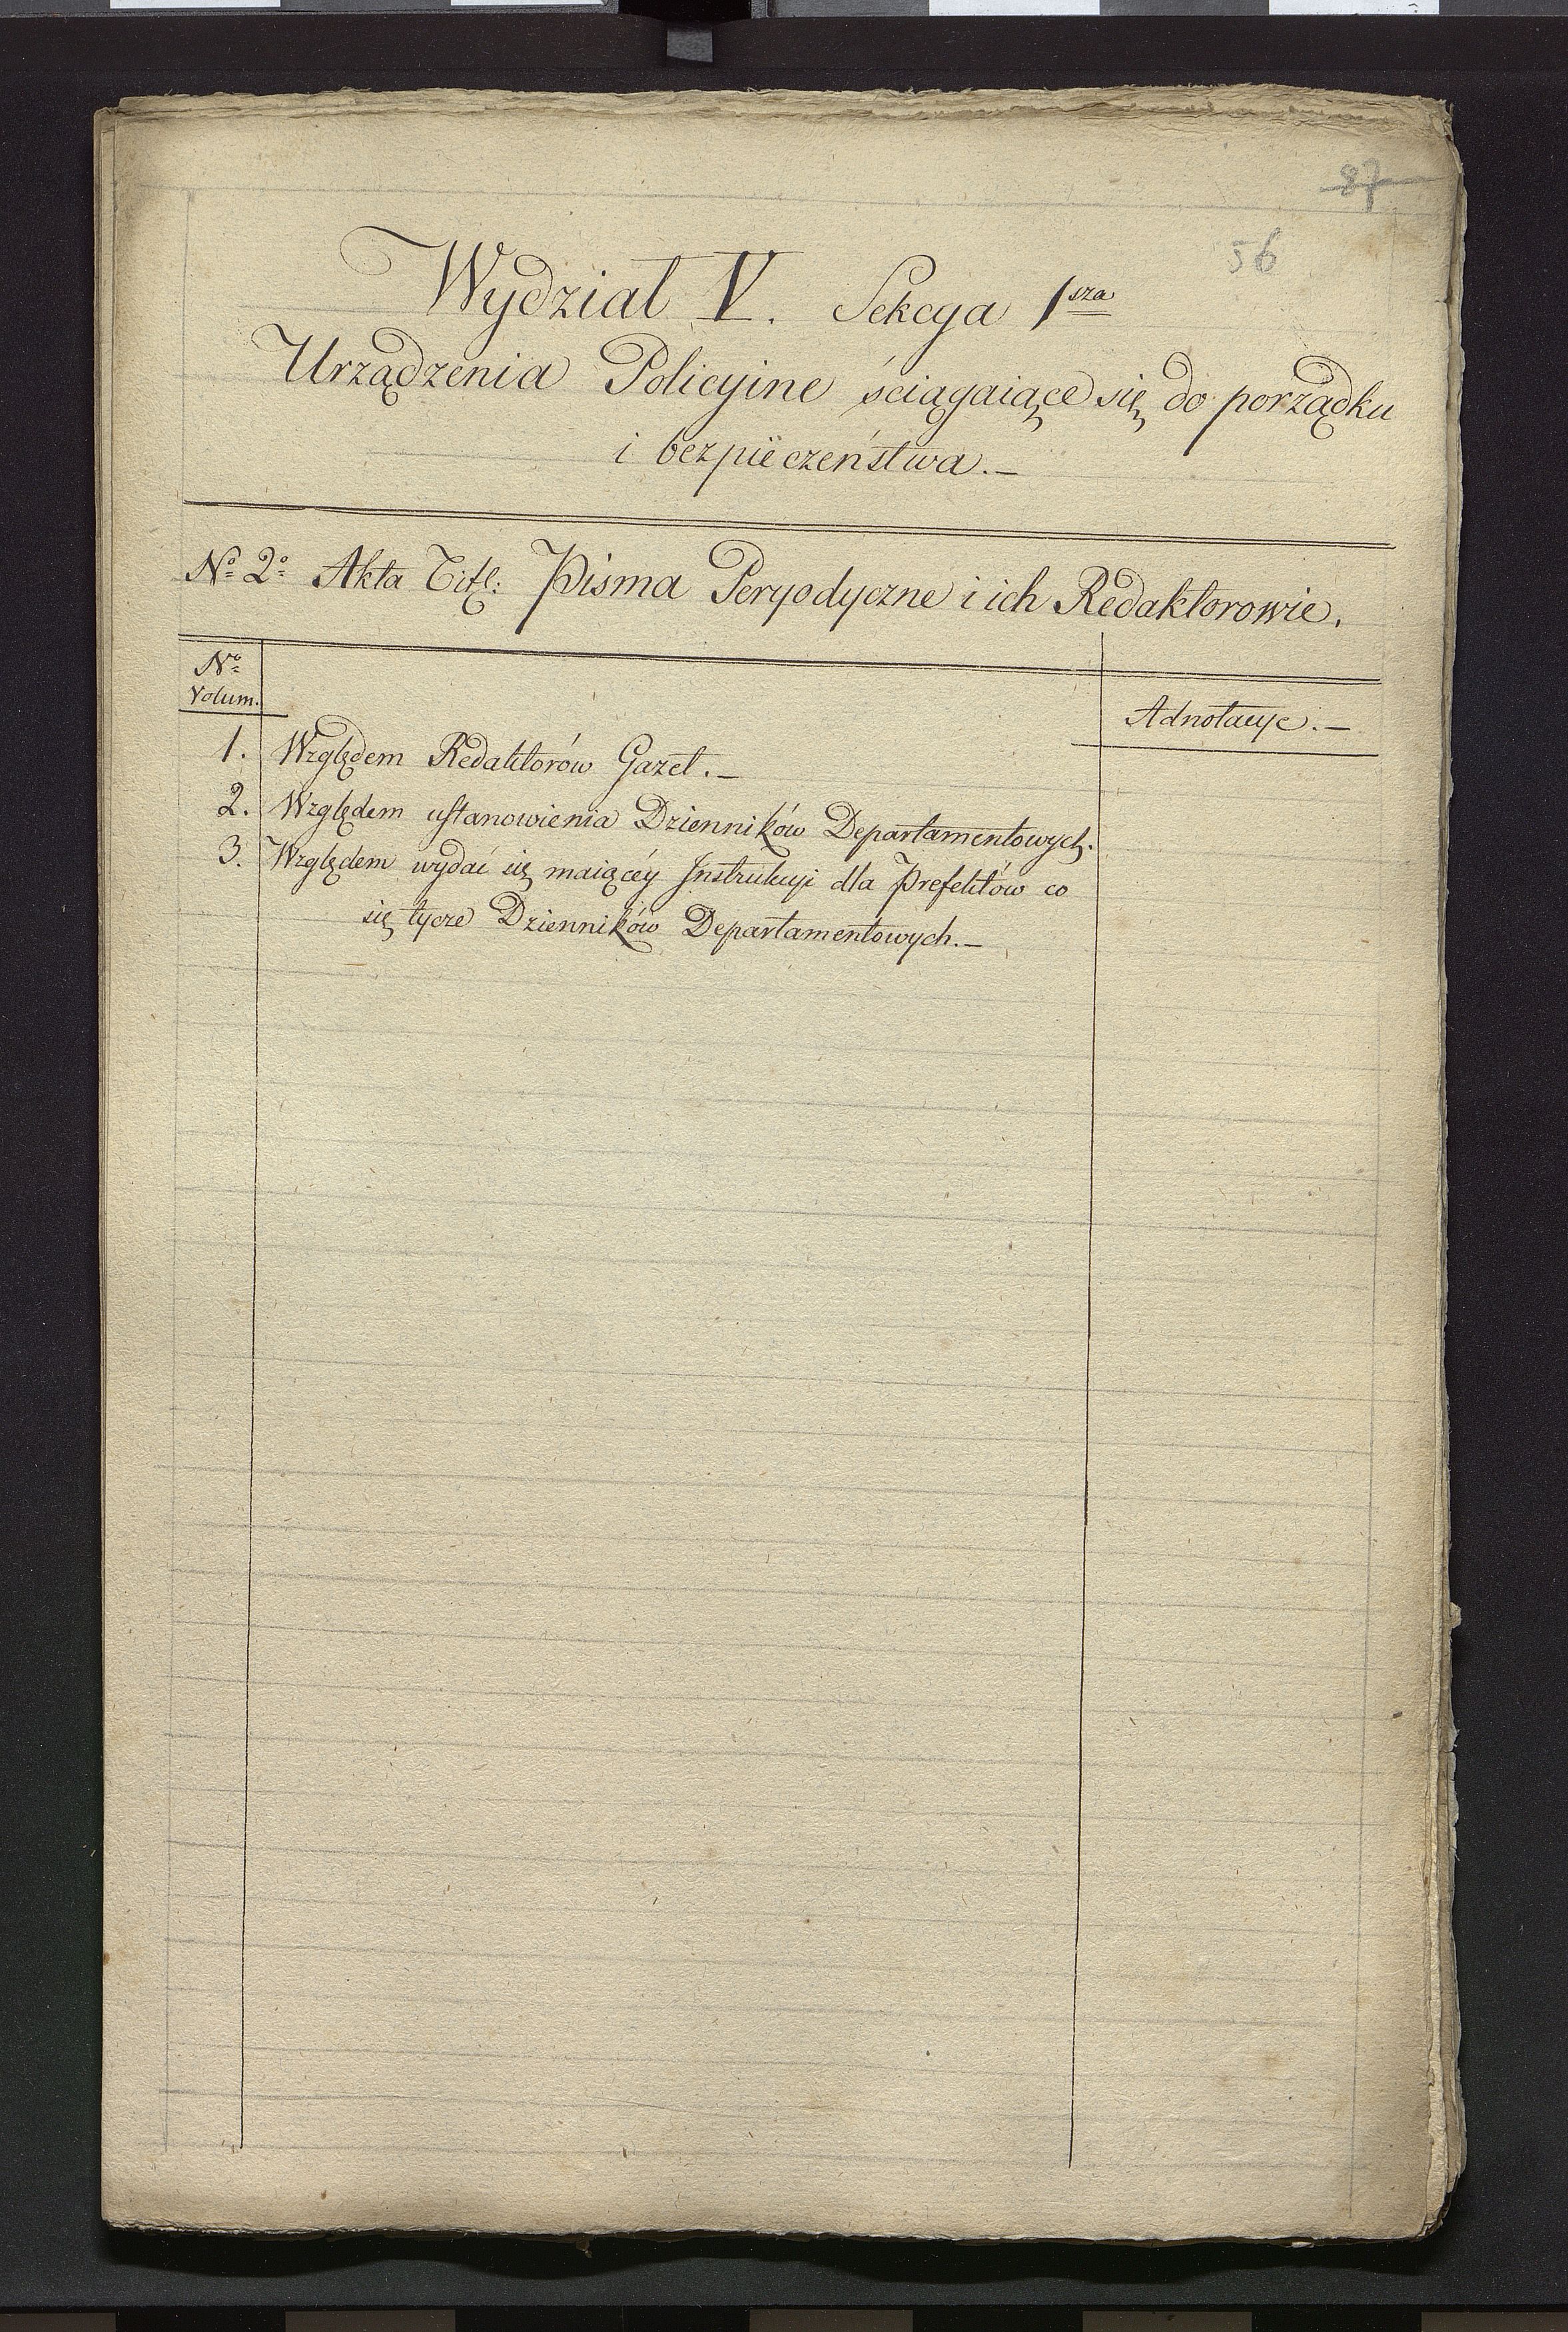 87
56
Wydział V. Sekcya 1sza
Urządzenia Policyine ściągaiące się do porządku
i bezpieczeństwa.—
No 2o Akta Titl: Pisma Peryodyczne i ich Redaktorowie.
No
Volum.
Adnotacye.—
1. Względem Redaktorów Gazet.—
2. Względem ustanowienia Dzienników Departamentowych.
3. Względem wydać się maiącéy Instrukcyi dla Prefektów co
się tycze Dzienników Departamentowych.—